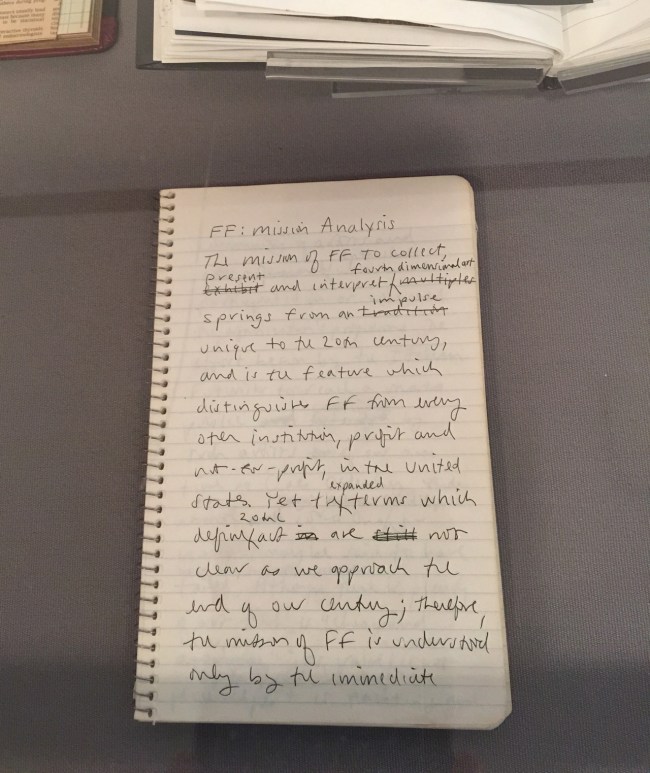 FF: Mission Analysis
The mission of FF to collect,
present fourth dimensional art
exhibit and interpret multiples
impulse
springs from an tradition
unique to the 20th century,
and is the feature which
distinguishes FF from every
other institution, profit and
not-for-profit, in the United
expanded
States. Yet the terms which
20thC
define art in are still not
clear as we approach the
end of our century; therefore,
the mission of FF is understood
only by the immediate